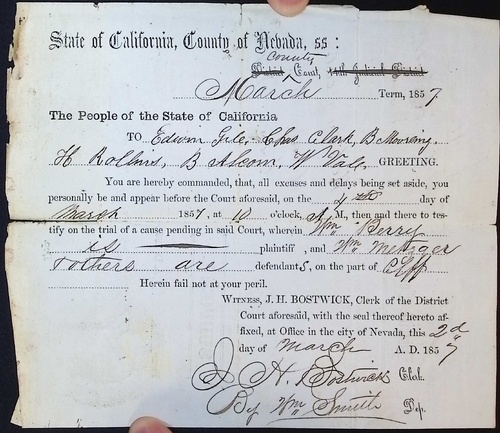 State of California, County of Nevada, ss:
County
District Court, 14th Judicial District
March Term, 1857.
The People of the State of California
TO Edwin Gile, Chas Clark, B
H Rollins, B Alcom, W Vale, GREETING.
You are hereby commanded, that, all excuses and delays being set aside, you
personally be and appear before the Court aforesaid, on the 4th day of
March 1857, at 10 o'clock, A M., then and there to tes-
tify on the trial of a cause pending in said Court, wherein Wm Berry
is plaintiff, and Wm Metzger
+ others are defendants, on the part of Plff
Herein fail not at your peril.
WITNESS, J. H. BOSTWICK, Clerk of the District
Court aforesaid, with the seal thereof hereto af-
fixed, at Office in the city of Nevada, this 2d
day of March A. D. 1857
J H. Bostwick Clerk.
By Wm Smith Dep.